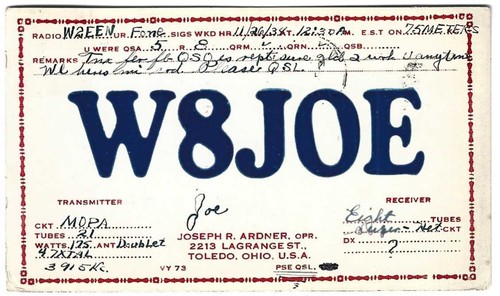 RADIO W2EEN UR. Fone SIGS WKD HR 11/26/38 AT. 12:30 A M. E.S.T ON. 75 METERS
U WERE QSA 5 R. 8 QRM QRN QSB
REMARKS Tnx fer fb QSO es rept sure glad 2 wrk U anytime
Wl hens mi crd. Please QSL.
W8JOE
TRANSMITTER
RECEIVER
Joe
CKT MOPA
TUBES 21
WATTS 175 ANT Doublet
47 XTAL
3915 K.
JOSEPH R. ARDNER, OPR.
2213 LAGRANGE ST.,
TOLEDO, OHIO, U.S.A.
VY 73
PSE QSL.
Eight TUBES
Super-Het CKT
DX ?